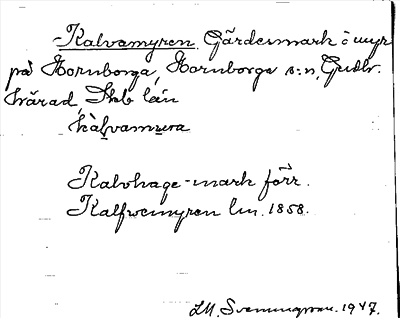 Kalvamyren. Gärdesmark o myr
på Hornborga, Hornborga s:n, Gudh.
härad, Skb län
kàlvamȳra
Kalvhage-mark förr.
Kalfwemyren lm. 1858.
1947.